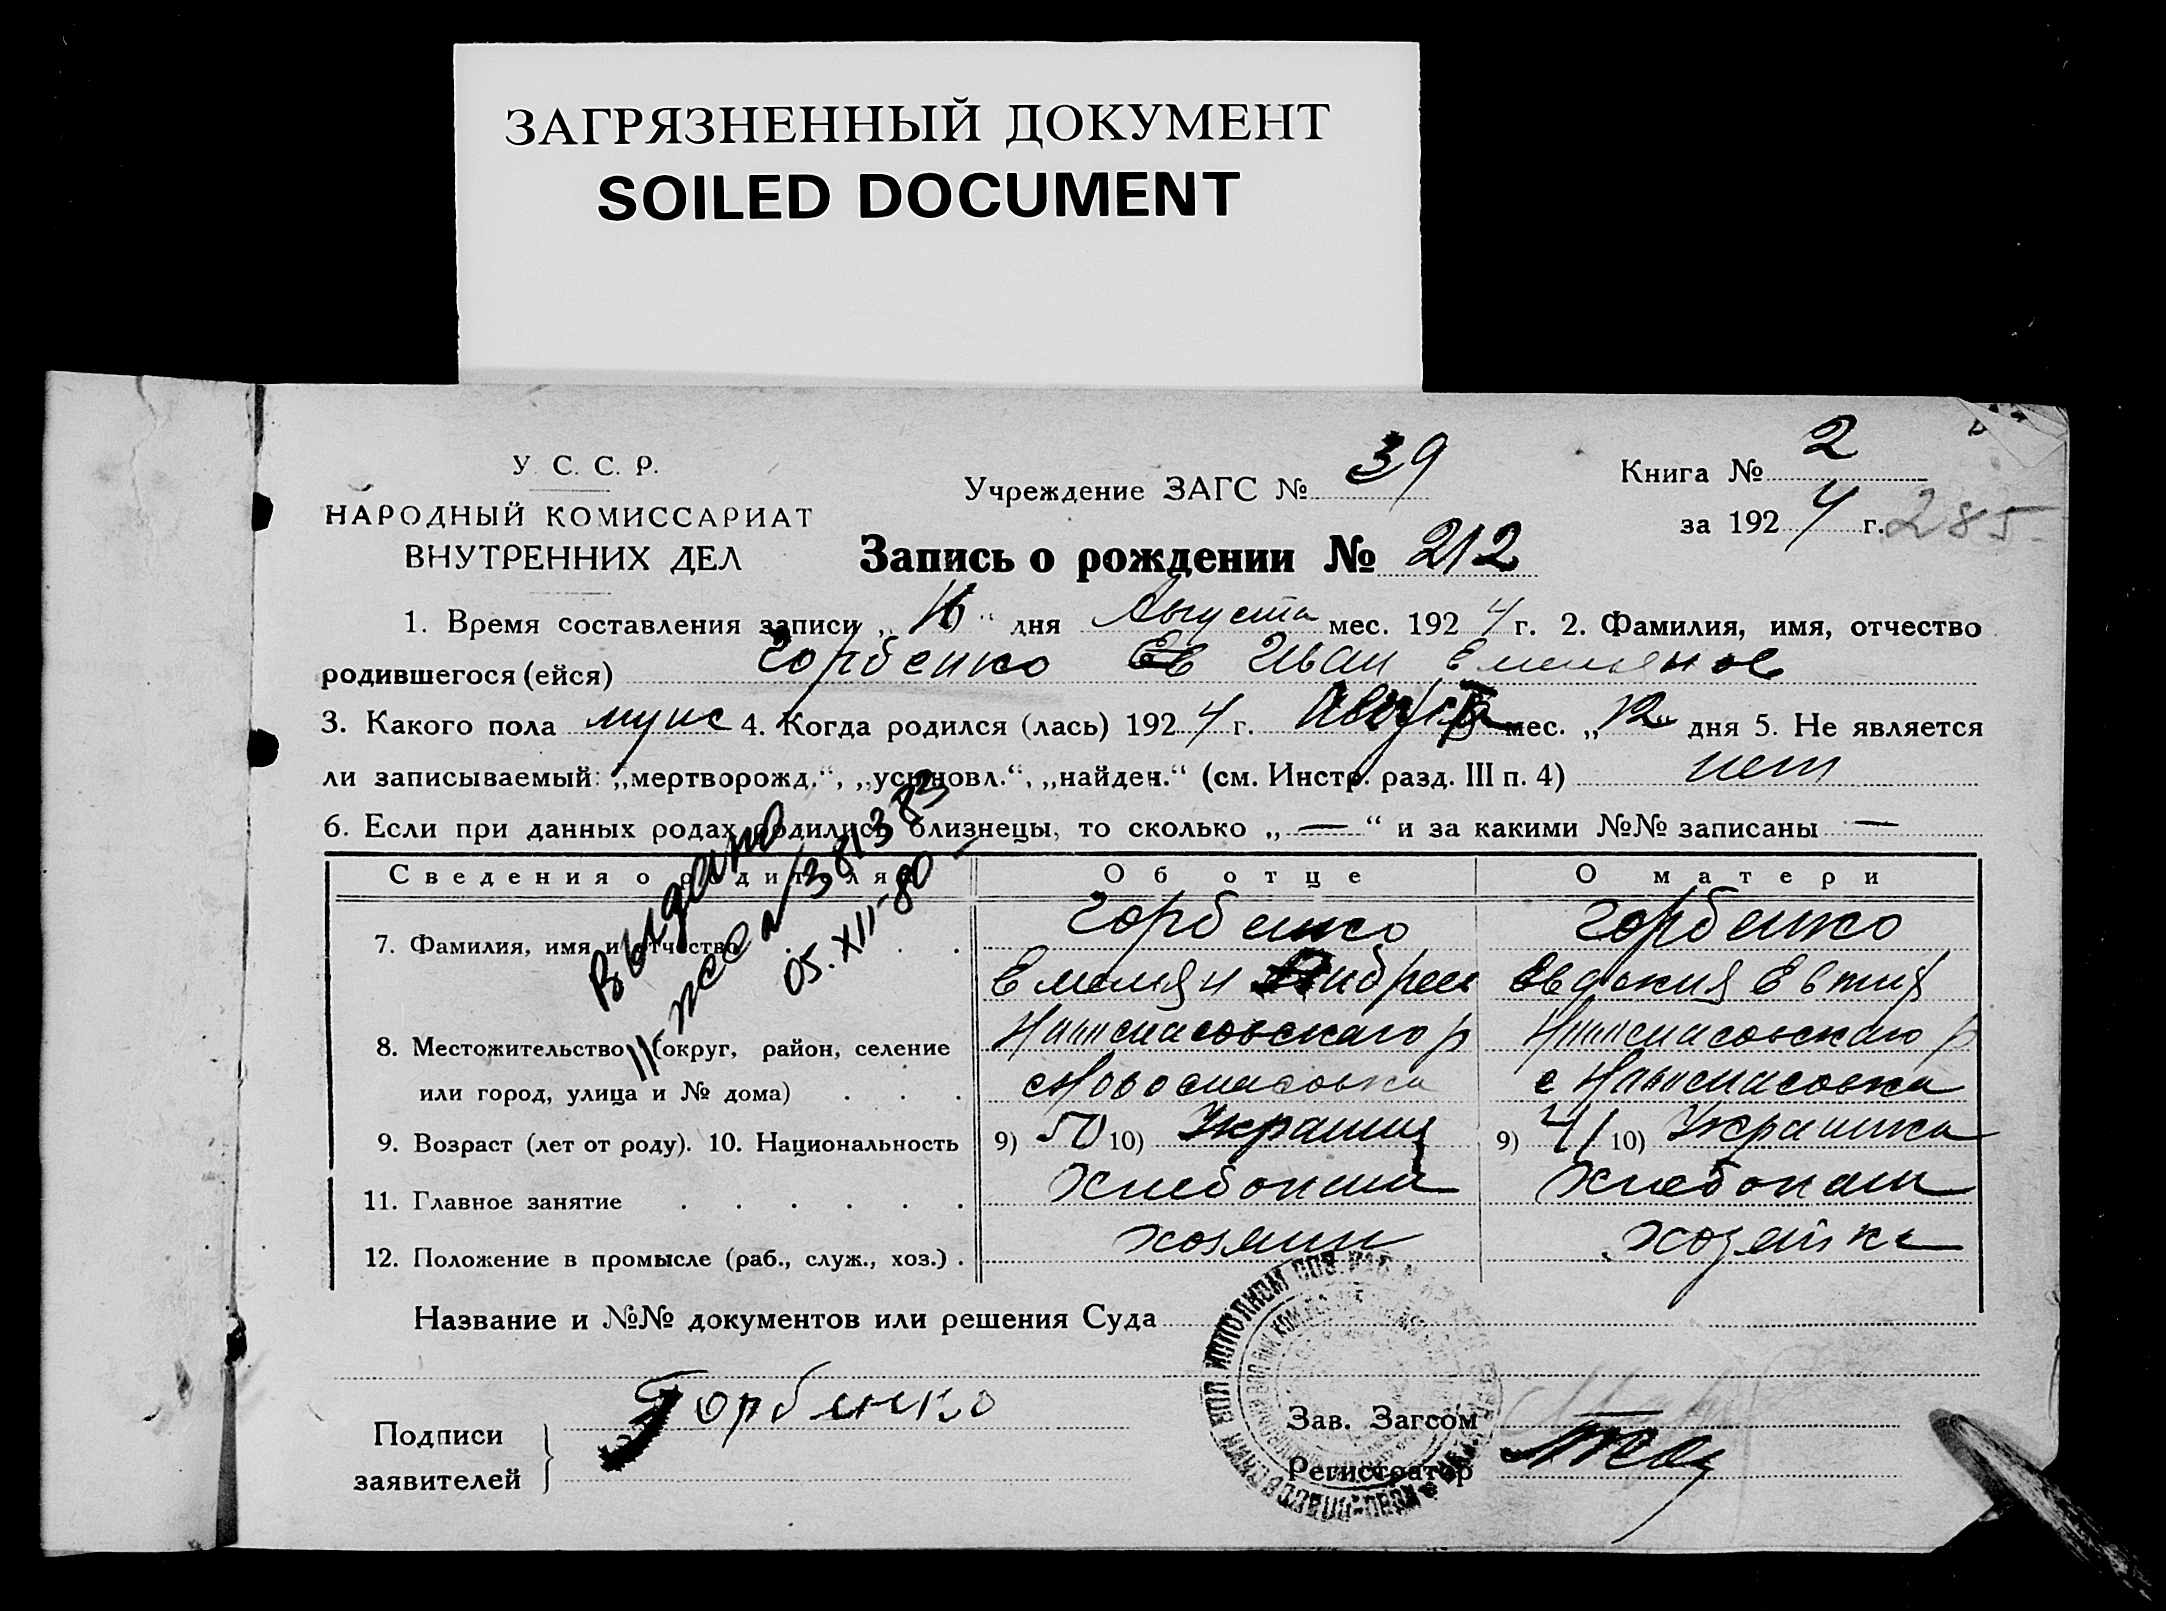 ЗАГРЯЗНЕННЫЙ ДОКУМЕНТ
SOILED DOCUMENT
У. С. С. Р.
НАРОДНЫЙ КОМИССАРИАТ
ВНУТРЕННИХ ДЕЛ
Учреждение ЗАГС № 39
Книга № 2
за 1924 г. 285
Запись о рождении № 212
1. Время составления записи „16“ дня Августа мес. 1924 г. 2. Фамилия, имя, отчество
родившегося (ейся) Горбенко Ев Иван Емельянов
3. Какого пола муж 4. Когда родился (лась) 1924 г. Август мес. „12“ дня 5. Не является
ли записываемый: „мертворожд.“, „усыновл.“, „найден.“ (см. Инстр. разд. III п. 4) нет
6. Если при данных родах родились близнецы, то сколько „—“ и за какими №№ записаны —
Сведения о родителях Об отце О матери
7. Фамилия, имя и отчество Горбенко Горбенко
Емельян Андреев Евдокия Евтиф
8. Местожительство (округ, район, селение Новоспасовскаго р Новоспасовскаго р
или город, улица и № дома) с Новоспасовка с Новоспасовка
9. Возраст (лет от роду). 10. Национальность 9) 50 10) Украинец 9) 41 10) Украинка
11. Главное занятие Хлебопаш Хлебопаш
12. Положение в промысле (раб., служ., хоз.) хозяин хозяйка
Выдано
381383
05.XII-80
Название и №№ документов или решения Суда
Подписи
заявителей
Горбенко
Зав. Загсом
Регистратор